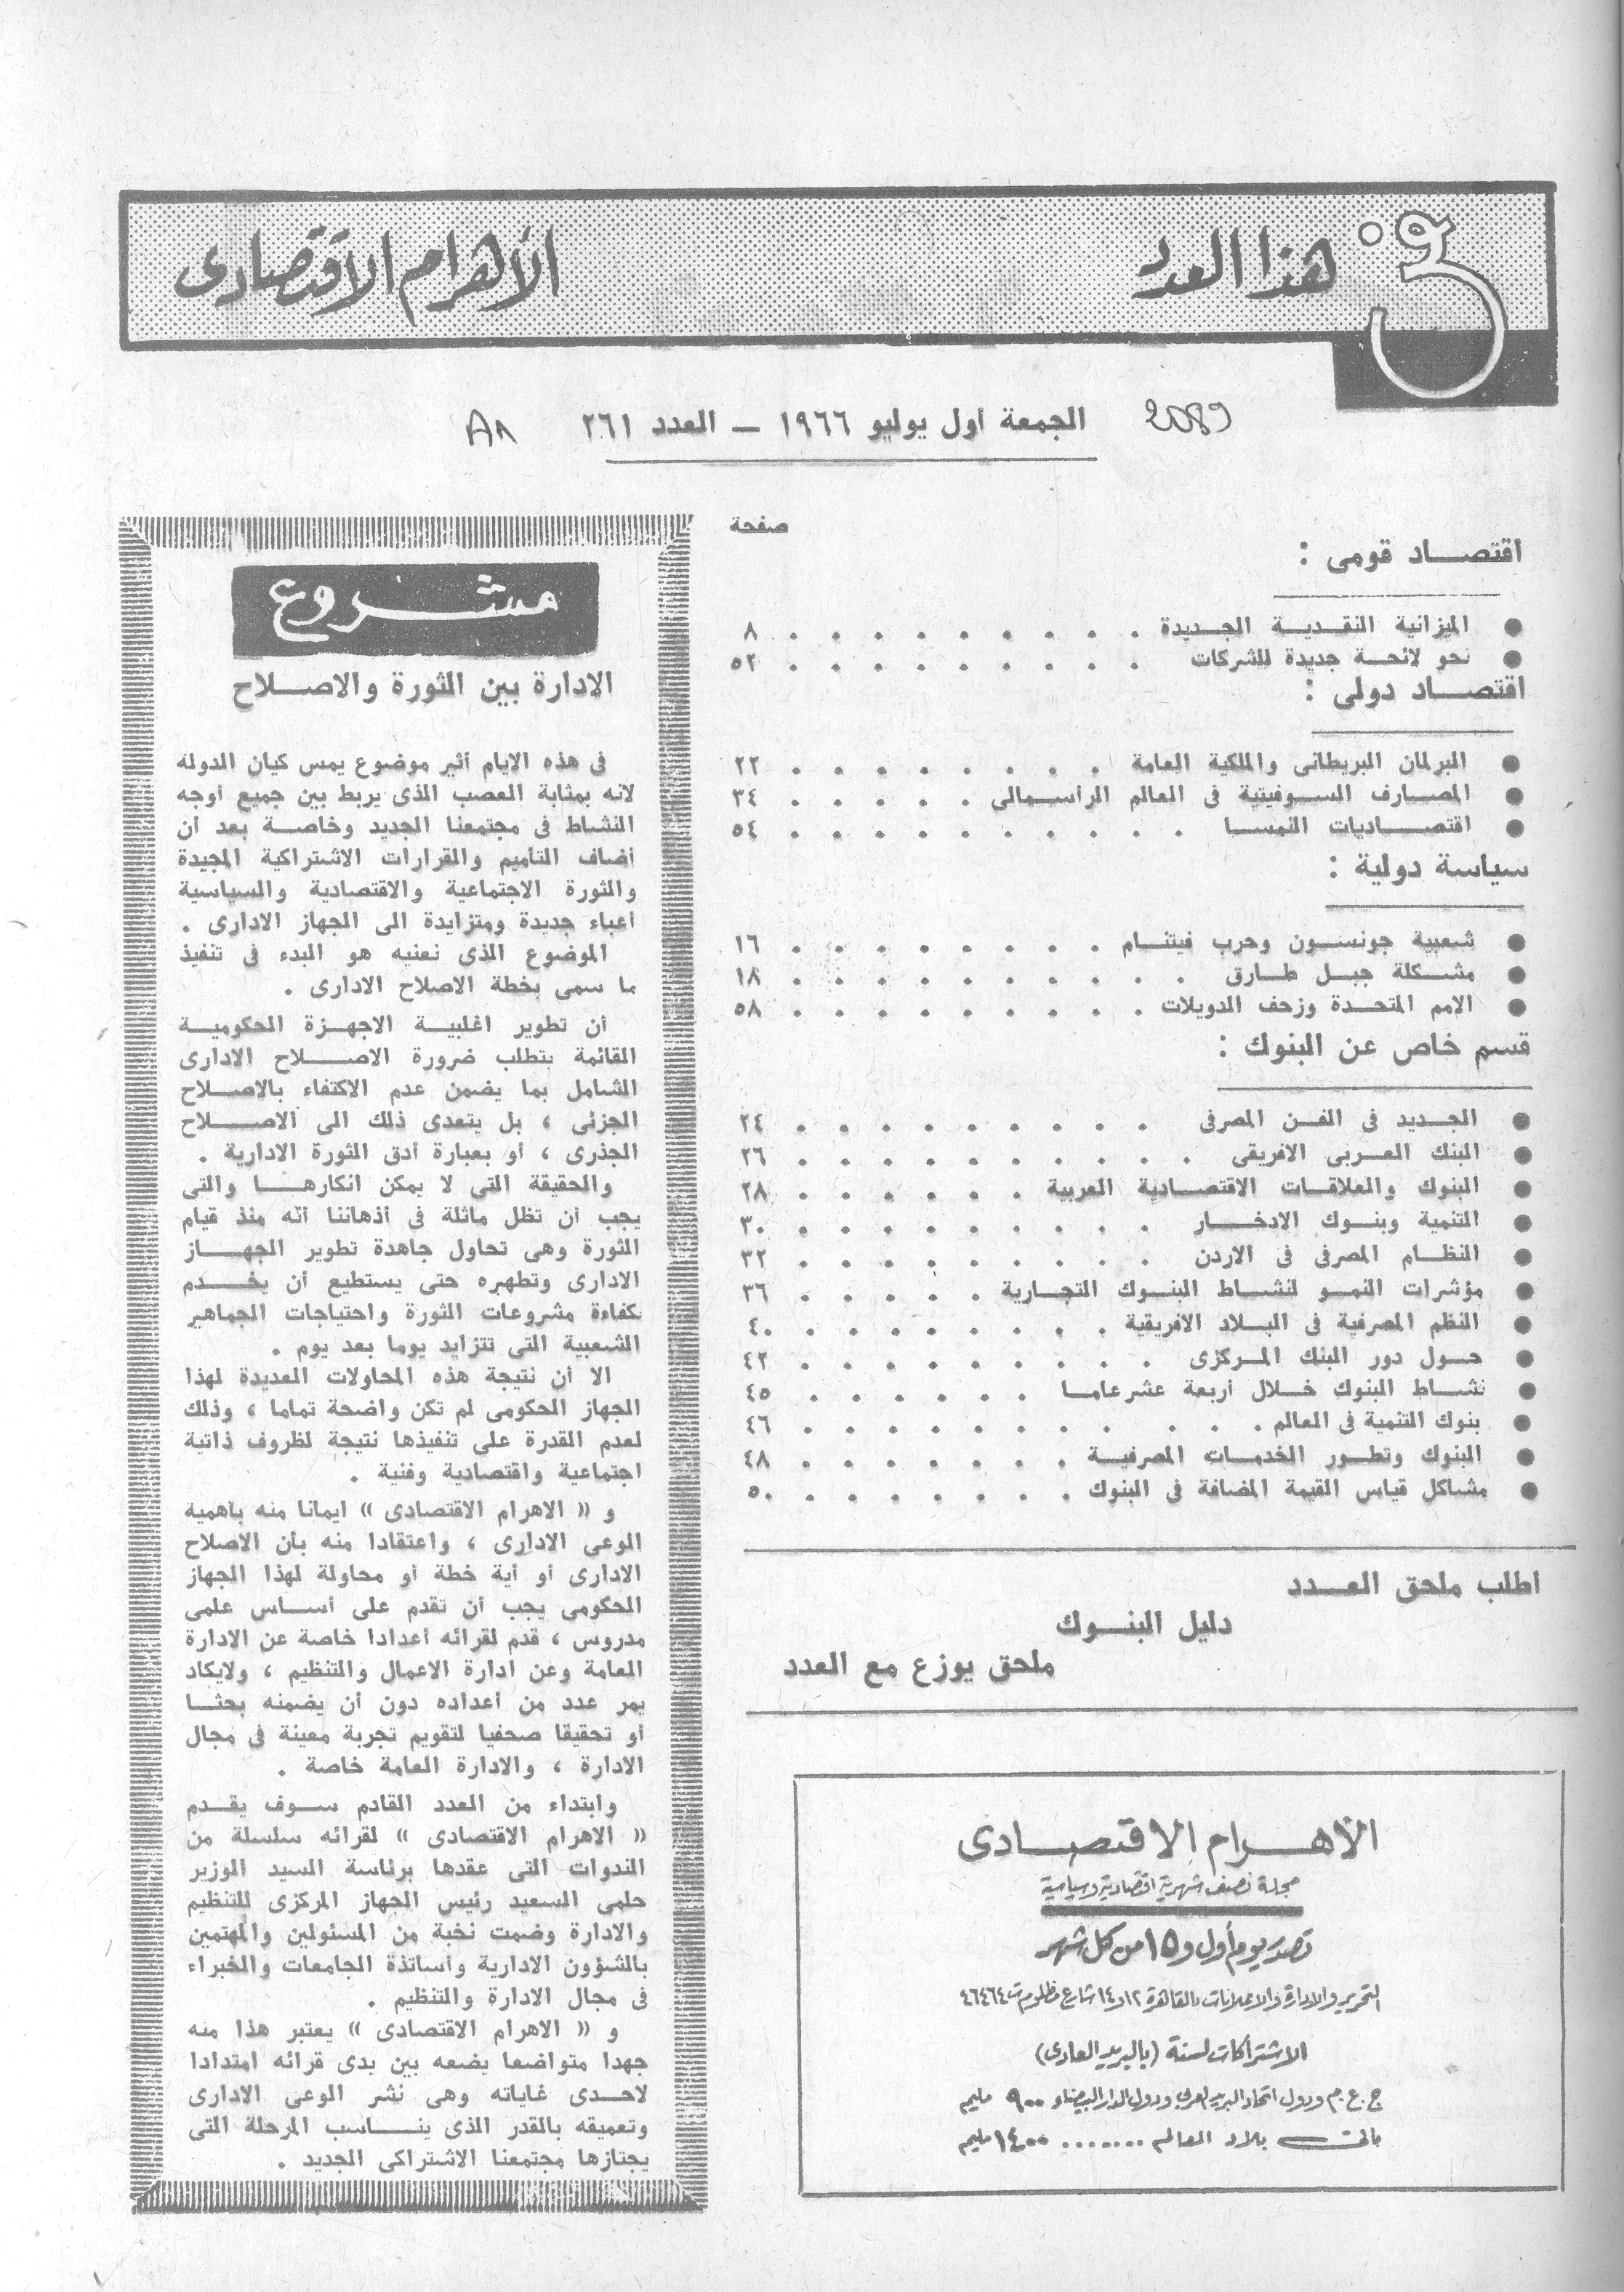 في هذا العدد
الأهرام الاقتصادى
2089
الجمعة أول يوليو ١٩٦٦ — العدد ٢٦١
صفحة
اقتصـــاد قومى :
● الميزانية النقـديــة الجـديدة . . . . . . . . . ٨
● نحو لائحـــة جديدة للشركات . . . . . . . . . ٥٢
اقتصـــاد دولى :
● البرلمان البريطانى والملكية العامة . . . . . . . . ٢٢
● المصــارف الســوفيتية فى العالم الرأســمالى . . . . . ٣٤
● اقتصـــاديات النمســا . . . . . . . . . . ٥٤
سياسة دولية :
● شعبية جونســون وحرب فيتنــام . . . . . . . . ١٦
● مشــكلة جبــل طــارق . . . . . . . . . . ١٨
● الامم المتحـدة وزحف الدويلات . . . . . . . . . ٥٨
قسم خاص عن البنوك :
● الجــديد فى الفــن المصرفى . . . . . . . . . ٢٤
● البنك العــربى الافريقى . . . . . . . . . . ٢٦
● البنوك والعلاقــات الاقتصــادية العربية . . . . . . ٢٨
● التنمية وبنــوك الادخــار . . . . . . . . . ٣٠
● النظــام المصرفى فى الاردن . . . . . . . . . ٣٢
● مؤشرات النمــو لنشــاط البنــوك التجــارية . . . . . ٣٦
● النظم المصرفية فى البــلاد الافريقية . . . . . . . . ٤٠
● حــول دور البنك المــركزى . . . . . . . . . ٤٢
● نشــاط البنوك خــلال أربعة عشر عامــا . . . . . . ٤٥
● بنوك التنمية فى العالم . . . . . . . . . . . ٤٦
● البنوك وتطــور الخدمــات المصرفيــة . . . . . . . ٤٨
● مشاكل قياس القيمة المضافة فى البنوك . . . . . . . ٥٠
اطلب ملحق العـــدد
دليل البنــوك
ملحق يوزع مع العدد
الأهـــرام الاقتصـــادى
مجلة نصف شهرية اقتصادية وسياسية
تصدر يوم أول و١٥ من كل شهر
التحرير والادارة والاعلانات بالقاهرة ١٢ و١٤ شارع مظلوم ت ٤٦٤٦٤
الاشتراكات لسنة (بالبريد العادى)
ج.ع.م ودول اتحاد البريد العربى ودول الدار البيضاء ٩٠٠ مليم
باقى بلاد العالم ....... ١٤٠٠ مليم
مشـــروع
الادارة بين الثورة والاصـــلاح
فى هذه الايام أثير موضوع يمس كيان الدولة
لانه بمثابة العصب الذى يربط بين جميع أوجه
النشاط فى مجتمعنا الجديد وخاصــة بعد أن
أضاف التأميم والقرارات الاشتراكية المجيدة
والثورة الاجتماعية والاقتصادية والسياسية
أعباء جديدة ومتزايدة الى الجهاز الادارى .
الموضوع الذى نعنيه هو البدء فى تنفيذ
ما سمى بخطة الاصلاح الادارى .
أن تطوير اغلبيــة الاجهــزة الحكوميــة
القائمة يتطلب ضرورة الاصـــلاح الادارى
الشامل بما يضمن عدم الاكتفاء بالاصــلاح
الجزئى ، بل يتعدى ذلك الى الاصـــلاح
الجذرى ، أو بعبارة أدق الثورة الادارية .
والحقيقة التى لا يمكن انكارهــا والتى
يجب أن تظل ماثلة فى أذهاننا أنه منذ قيام
الثورة وهى تحاول جاهدة تطوير الجهـــاز
الادارى وتطهيره حتى يستطيع أن يخـــدم
بكفاءة مشروعات الثورة واحتياجات الجماهير
الشعبية التى تتزايد يوما بعد يوم .
الا أن نتيجة هذه المحاولات العديدة لهذا
الجهاز الحكومى لم تكن واضحة تماما ، وذلك
لعدم القدرة على تنفيذها نتيجة لظروف ذاتية
اجتماعية واقتصادية وفنية .
و « الاهرام الاقتصادى » ايمانا منه بأهمية
الوعى الادارى ، واعتقادا منه بأن الاصلاح
الادارى أو أية خطة أو محاولة لهذا الجهاز
الحكومى يجب أن تقدم على أســاس علمى
مدروس ، قدم لقرائه أعدادا خاصة عن الادارة
العامة وعن ادارة الاعمال والتنظيم ، ولايكاد
يمر عدد من أعداده دون أن يضمنه بحثــا
أو تحقيقا صحفيا لتقويم تجربة معينة فى مجال
الادارة ، والادارة العامة خاصة .
وابتداء من العدد القادم ســوف يقــدم
« الاهرام الاقتصادى » لقرائه سلسلة من
الندوات التى عقدها برئاسة السيد الوزير
حلمى السعيد رئيس الجهاز المركزى للتنظيم
والادارة وضمت نخبة من المسئولين والمهتمين
بالشؤون الادارية وأساتذة الجامعات والخبراء
فى مجال الادارة والتنظيم .
و « الاهرام الاقتصادى » يعتبر هذا منه
جهدا متواضعا يضعه بين يدى قرائه امتدادا
لاحــدى غاياته وهى نشر الوعى الادارى
وتعميقه بالقدر الذى ينـــاسب المرحلة التى
يجتازها مجتمعنا الاشتراكى الجديد .